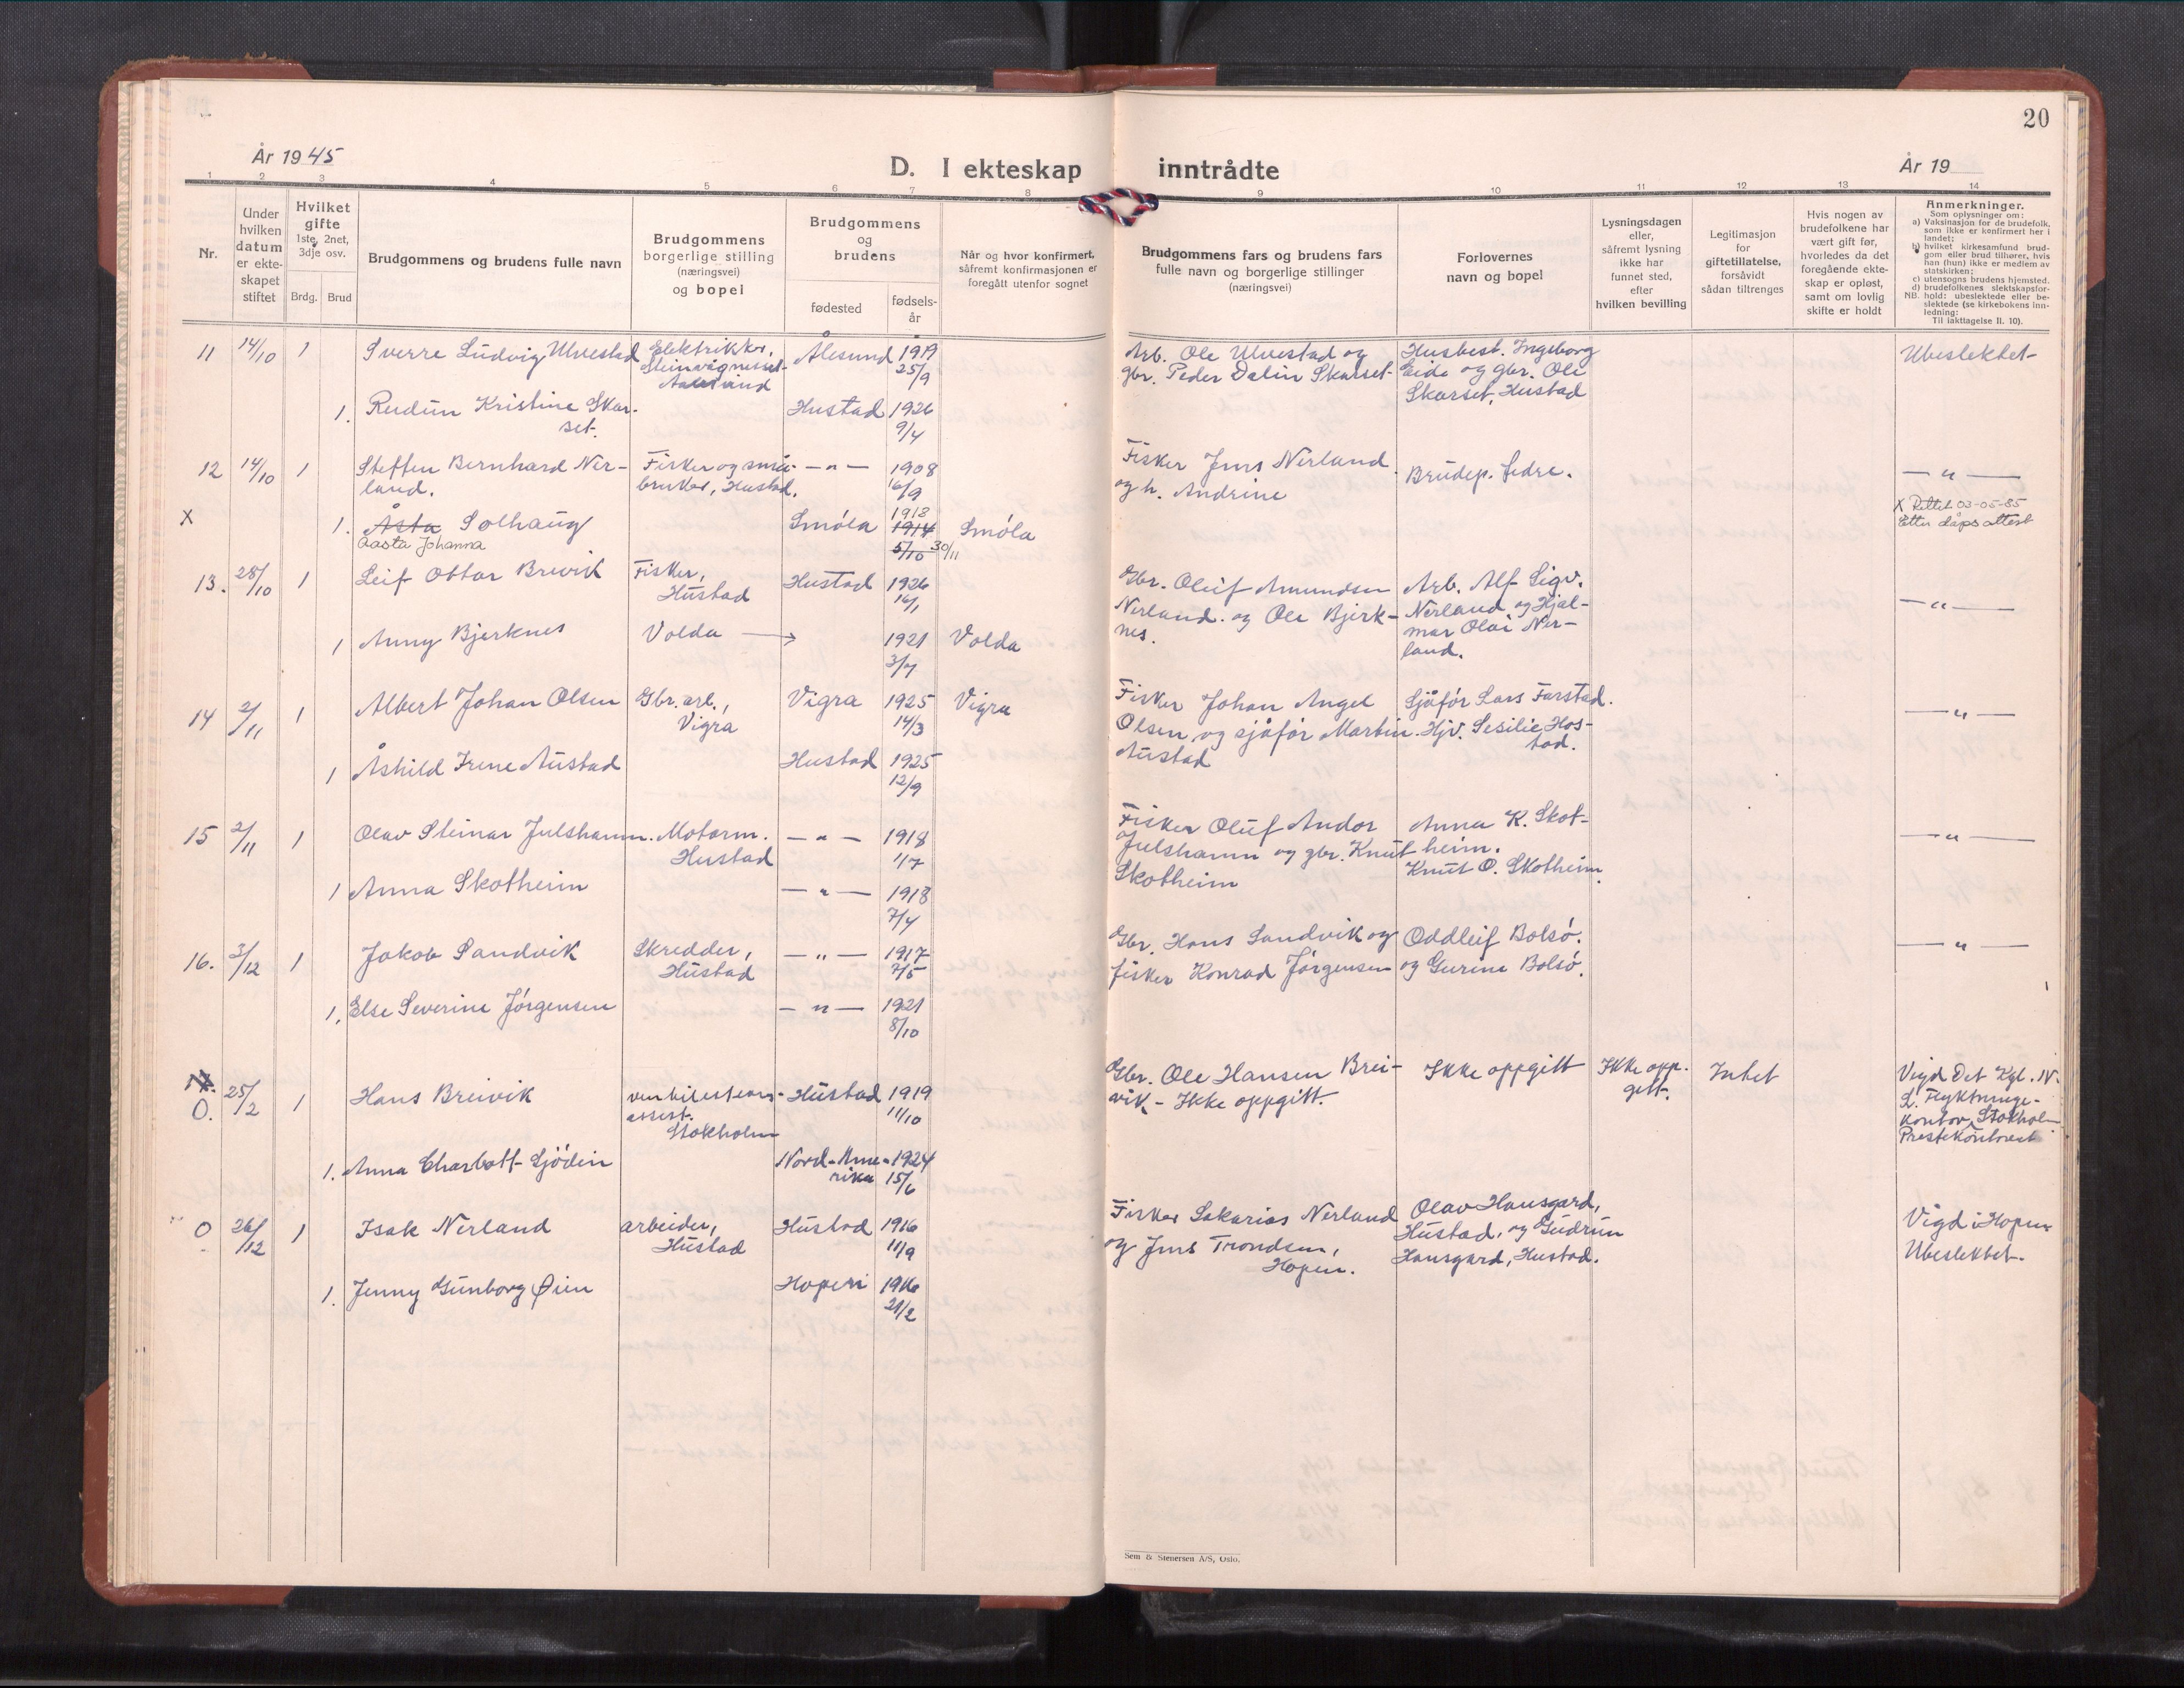 20
År 1945
D. I ekteskap inntrådte
År 19
1 2 3 4 5 6 7 8 9 10 11 12 13 14
Nr.
Under hvilken datum er ekte-skapet stiftet
Hvilket gifte
1ste, 2net, 3dje osv.
Brdg. Brud
Brudgommens og brudens fulle navn
Brudgommens borgerlige stilling (næringsvei) og bopel
Brudgommens og brudens
fødested
fødsels-år
Når og hvor konfirmert, såfremt konfirmasjonen er foregått utenfor sognet
Brudgommens fars og brudens fars fulle navn og borgerlige stillinger (næringsvei)
Forlovernes navn og bopel
Lysningsdagen eller, såfremt lysning ikke har funnet sted, efter hvilken bevilling
Legitimasjon for giftetillatelse, forsåvidt sådan tiltrenges
Hvis nogen av brudefolkene har vært gift før, hvorledes da det foregående ekte-skap er opløst, samt om lovlig skifte er holdt
Anmerkninger.
Som oplysninger om:
a) Vaksinasjon for de brudefolk, som ikke er konfirmert her i landet;
b) hvilket kirkesamfund brud-gom eller brud tilhører, hvis han (hun) ikke er medlem av statskirken;
c) utensogns brudens hjemsted.
d) brudefolkenes slektskapsfor-hold: ubeslektede eller be-slektede (se kirkebokens inn-ledning:
NB.
Til iakttagelse II. 10).
11 14/10 1 Sverre Ludvig Ulvestad Elektriker, Ålesund 1919 Arb. Ole Ulvestad og Husbest. Ingeborg Ubeslektet
Steinvågneset 25/9 gbr. Peder Dalin Skarset Eide og gbr. Ole
Aalesund Skarset, Hustad
1. Reidun Kristine Skar- Hustad 1926
set. 9/4
12 14/10 1 Steffen Bernhard Ner- Fisker og små- — " — 1908 Fisker Jens Nerland Brudep. fedre. — " —
land. bruker, Hustad. 16/9 og h. Andrine
X 1. Åsta Solhaug Smöla 1913 1914 Smöla X Rettet 03-05-85
Aasta Johanna 5/10 30/11 Etter dåpsattest
13. 28/10 1 Leif Ottar Breivik Fisker, Hustad 1926 Gbr. Oleif Amundsen Arb. Alf Sigv. — " —
Hustad 16/1 Nerland. og Ole Bjerk- Nerland og Hjal-
1 Anny Bjerknes Volda → 1921 Volda nes. mar Olai Ner-
3/7 land.
14 2/11 1 Albert Johan Olsen Gbr. arb., Vigra 1925 Vigra Fisker Johan Angel Sjåfór Lars Farstad. — " —
Vigra 14/3 Olsen og sjåfór Martin Hjv. Sesilie Hos-
1 Åshild Irene Austad Hustad 1925 Austad tad.
12/9
15 2/11 1 Olav Steinar Julshamn. Motorm. — " — 1918 Fisker Oluf Andor Anna K. Skot- — " —
Hustad 1/7 Julshamn og gbr. Knut heim.
1 Anna Skotheim — " — 1918 Skotheim Knut O. Skotheim.
7/4
16. 3/12 1 Jakob Sandvik Skredder, — " — 1917 Gbr. Hans Sandvik og Oddleif Bolsó. — " —
Hustad 7/5 fisker Konrad Jórgensen og Gurine Bolsó.
1. Else Severine Jórgensen — " — 1921
8/10
17. 25/2 1 Hans Breivik Hustad 1919 Gbr. Ole Hansen Brei- Ikke oppgitt Ikke opp- Intet Vigd Det Kgl. N.
O. assist. 11/10 vik - Ikke oppgitt. gitt. L. Flyktninge-
Stokholm kontor, Stokholm
Prestekontoret
1. Anna Charlott Sjödin Nord-Ame- 1924
rika 15/6
O 26/12 1 Isak Nerland arbeider, Hustad 1916 Fisker Sakarias Nerland Olav Hausgard, Vigd i Hopen
Hustad 11/9 og Jens Trondsen, Hustad, og Gudrun Ubeslektet.
Hopen. Hausgard, Hustad.
1. Jenny Gunborg Øien Hopen 1916
21/2
Sem & Stenersen A/S, Oslo.